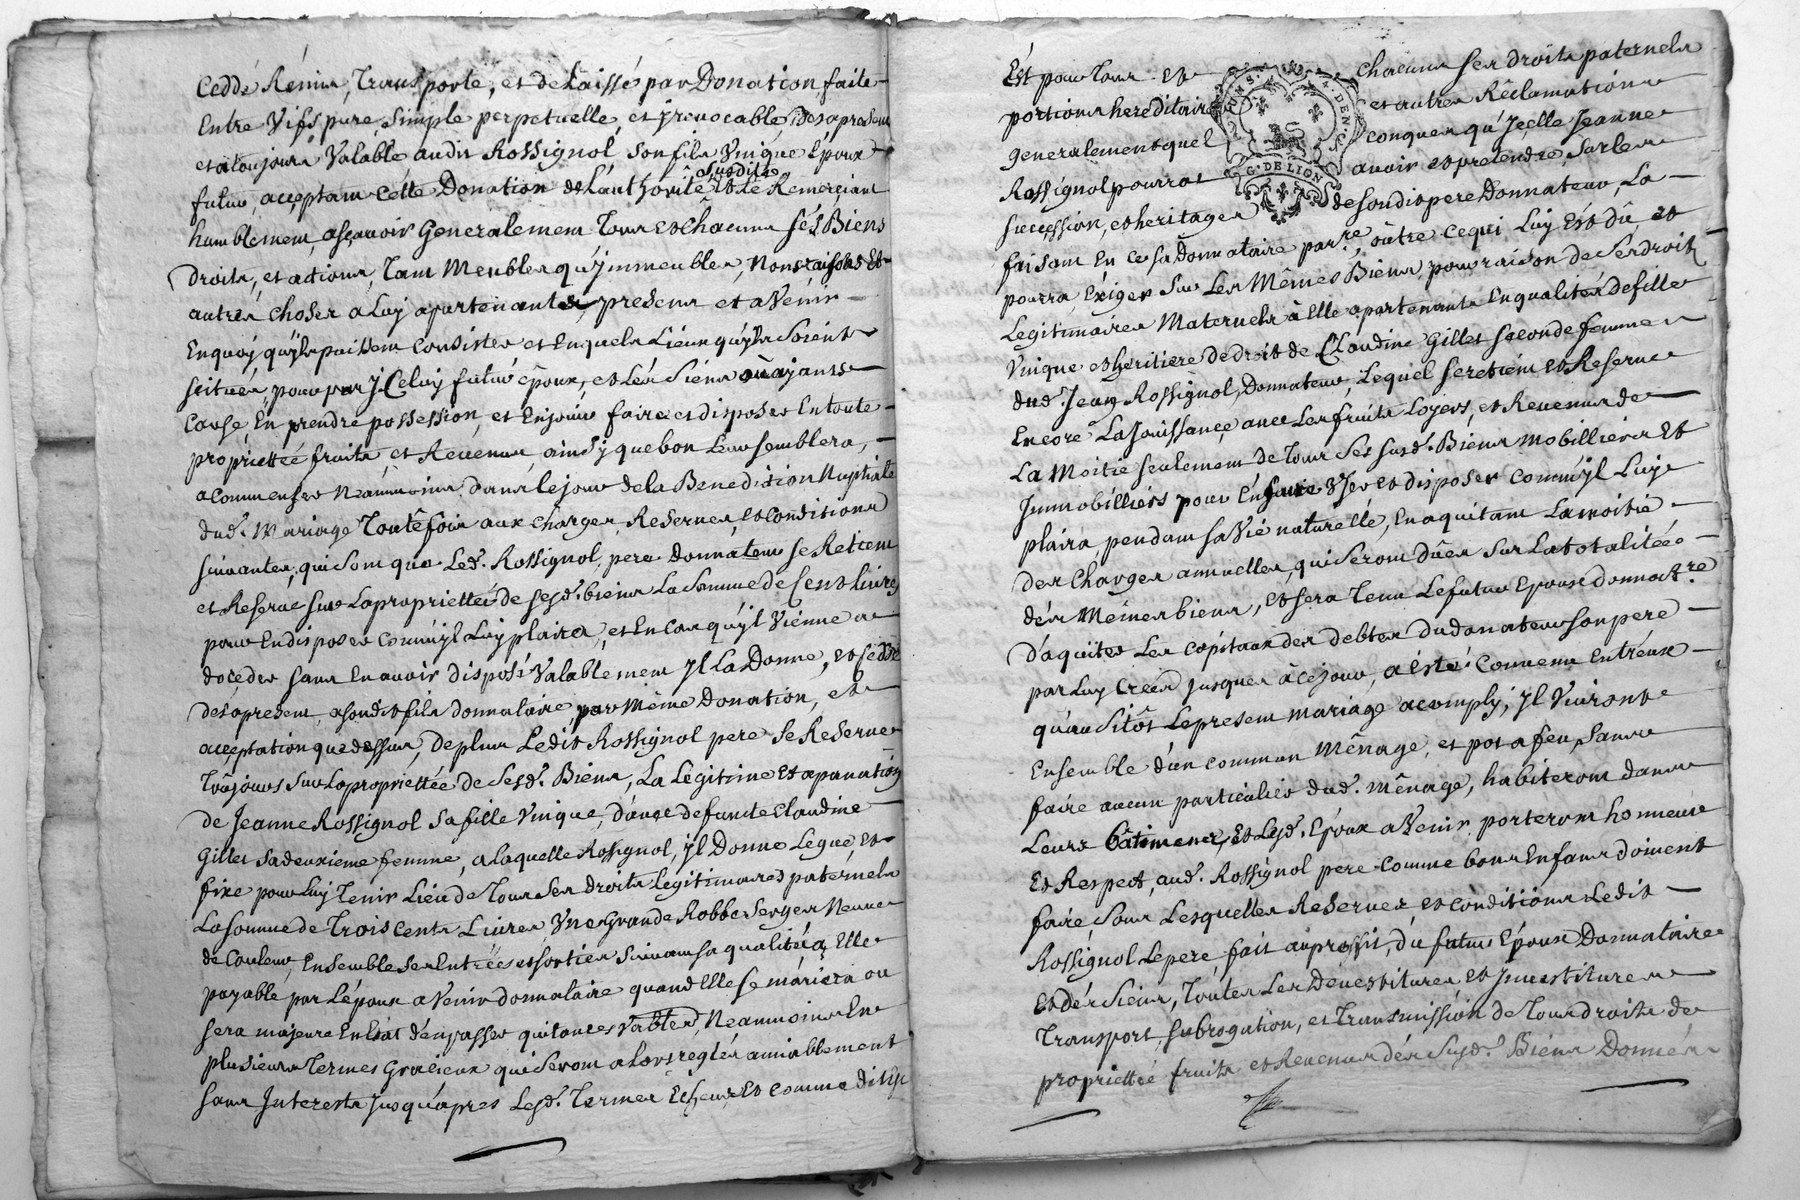 Ceddé Rémis, Transporte, et delaissé par Donation, faite
Entre Vifs pure, simple perpetuelle, et yrevocable, desapresent
et atoujours Valable audit Rossignol son fils Vnique Epoux
susdite
futur, acceptant cette Donation de Lauthorité et Le Remerçiant
humblement, asçavoir Generalement Tous et Châcuns sés Biens
droits, et actions, Tant Meubles qu'ymmeubles, Noms raisons et
autres choses a Luy apartenantes, presens et avenir
Enquoy qu'yls puissent Consister et Enquels Lieux qu'yls Soient
scitués, pour par yCeluy futur époux, et Lés Siens ou ayants
Cause, En prendre possession, et Enjouir faire et disposer Entoute
propriettée fruits, et Revenus, ainsy que bon Leur semblera,
acommenser Neanmoins dans le jour de la Benediction Nuptiale
dud. mariage Toutêfois aux Charges Reserves, et Conditions
suivantes, qui sont que Led. Rossignol, pere donnateur se Retient
et Reserve sur Lapropriettée de sesd. biens La Somme de Cent Livres
pour En disposer comm'yl Luy plaira, et En Cas qu'yl Vienne a
dôcéder sans Enavoir disposé Valablement yl La Donne, et Cédde
desapresent, asondit fils donnataire, par même Donation, et
acceptation que dessus, de plus Ledit Rossignol pere se Reserve
Toûjours sur La propriettée de Sesd. Biens, La Légitime et apanation
de Jeanne Rossignol Safille Vnique, d'avec defunte Claudine
Gillet Sadeuxieme femme, a Laquelle Rossignol, yl Donne Legue, et
fixe pour Luy Tenir Lieu de Tous Ses droits Legitimaires paternels
La somme de Trois Cents Livres, Vne Grande Robbe Serge Neuve
de Couleur, Ensemble Ses Entrées et sorties Suivant sa qualité
payable par L'époux avenir donnataire quand Elle se mariera ou
sera majeure En Etat d'enpasser quitances Vables, Neanmoins En
plusieurs Termes Gracieux qui Seront alors reglés amiablement
sans Interests Jusqu'apres Lesd. Termes Echeus, Et comme dit
Est pour Tous et chacuns ses droits paternels
portions hereditaires et autres Réclamations
generalement quel conques qu'Jcelle Jeanne
Rossignol pourrat avoir et pretendre Sur les
succession, et heritages de son dit pere Donnateur, La
faisant En ce sa Donnataire par.re, oûtre Ce qui Luy Est Dû, et
pourra, Exiger Sur Les Mêmes Biens, pour raison de Ses droits
Legitimaires Maternels à Elle apartenants En qualité de fille
Vnique et heritiere de droit de Claudine Gillet seconde femme
dud. Jean Rossignol, Donnateur, Lequel se retient et Reserve
Encore La Jouissançe, avec Les fruits Loyers, et Revenus de
La Moitié seulement de Tous Ses susd. Biens Mobilliers Et
Jmmobilliers pour En faire User et disposer Comm'yl Luy
plaira, pendant Sa Vie naturelle, En aquitant La moitié
des Charges annuelles, qui Seront dûes Sur La totalitée
dés Mêmes biens, et sera Tenu Le futur Epoux donnat.re
d'aquiter Les Capitaux des debtes du donateur son pere
par Luy Creés Jusques à ce jour, a êste Convenu Entréux
qu'au Sitôt Le present mariage acomply, yl Vivront
Ensemble d'un commun Mênage, et pot a feu Sans
faire aucun particulier dud. Mênage, habiteront dans
Leurs bâtiments, Et Lesd. Epoux avenir, porteront honneur
Et Respect, aud. Rossignol pere Comme bons Enfans doivent
faire Sous Lesquelles Reserves, et conditions Ledit
Rossignol Le pere fait au proffit, du futur Epoux Donnataire
Et dés Siens, Toutes Les Devestitures et Jnvestitures
Transport, Subrogation, et Transmission de Tous droits de
propriettée fruits et Revenus dés Susd. Biens Donnés
G. DE LION